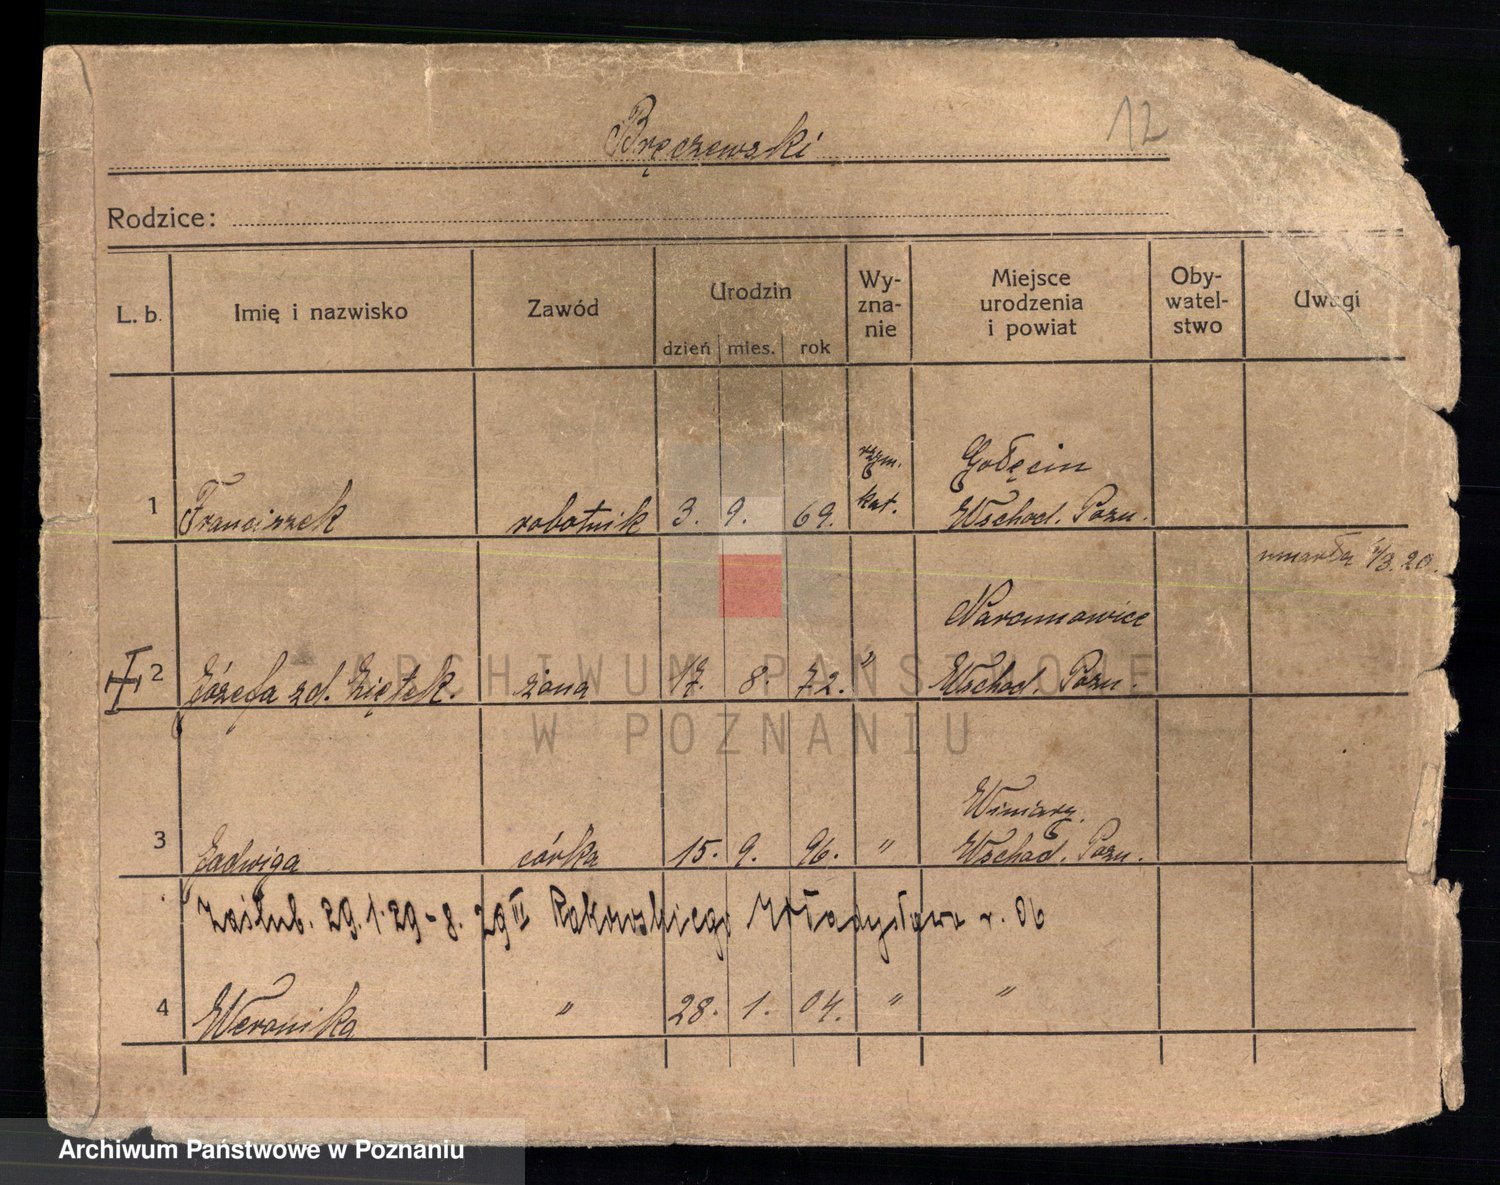 12
Bręczewski
Rodzice:
L. b. Imię i nazwisko Zawód Urodzin dzień mies. rok Wy- zna- nie Miejsce urodzenia i powiat Oby- watel- stwo Uwagi
1 Franciszek robotnik 3. 9. 69. rzym. kat. Gołęcin Wschod. Pozn.
umarła 3. 20.
2 Józefa zd. Ziętek. żona 17. 8. 72. " Naramowice Wschod. Pozn.
3 Jadwiga córka 15. 9. 96. " Winiary. Wschod. Pozn.
Zaślub. 29.1.29 - 8. 29 III Rakowskiego Władysława r. 06
4 Weronika " 28. 1. 04. " "
ARCHIWUM PAŃSTWOWE
W POZNANIU
Archiwum Państwowe w Poznaniu